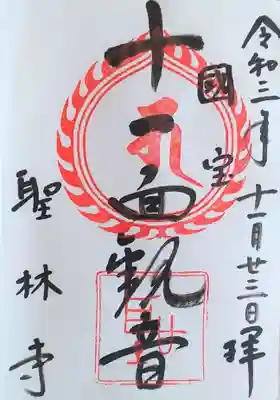 令和三年十一月廿三日拝
國宝
十一面觀音
聖林寺